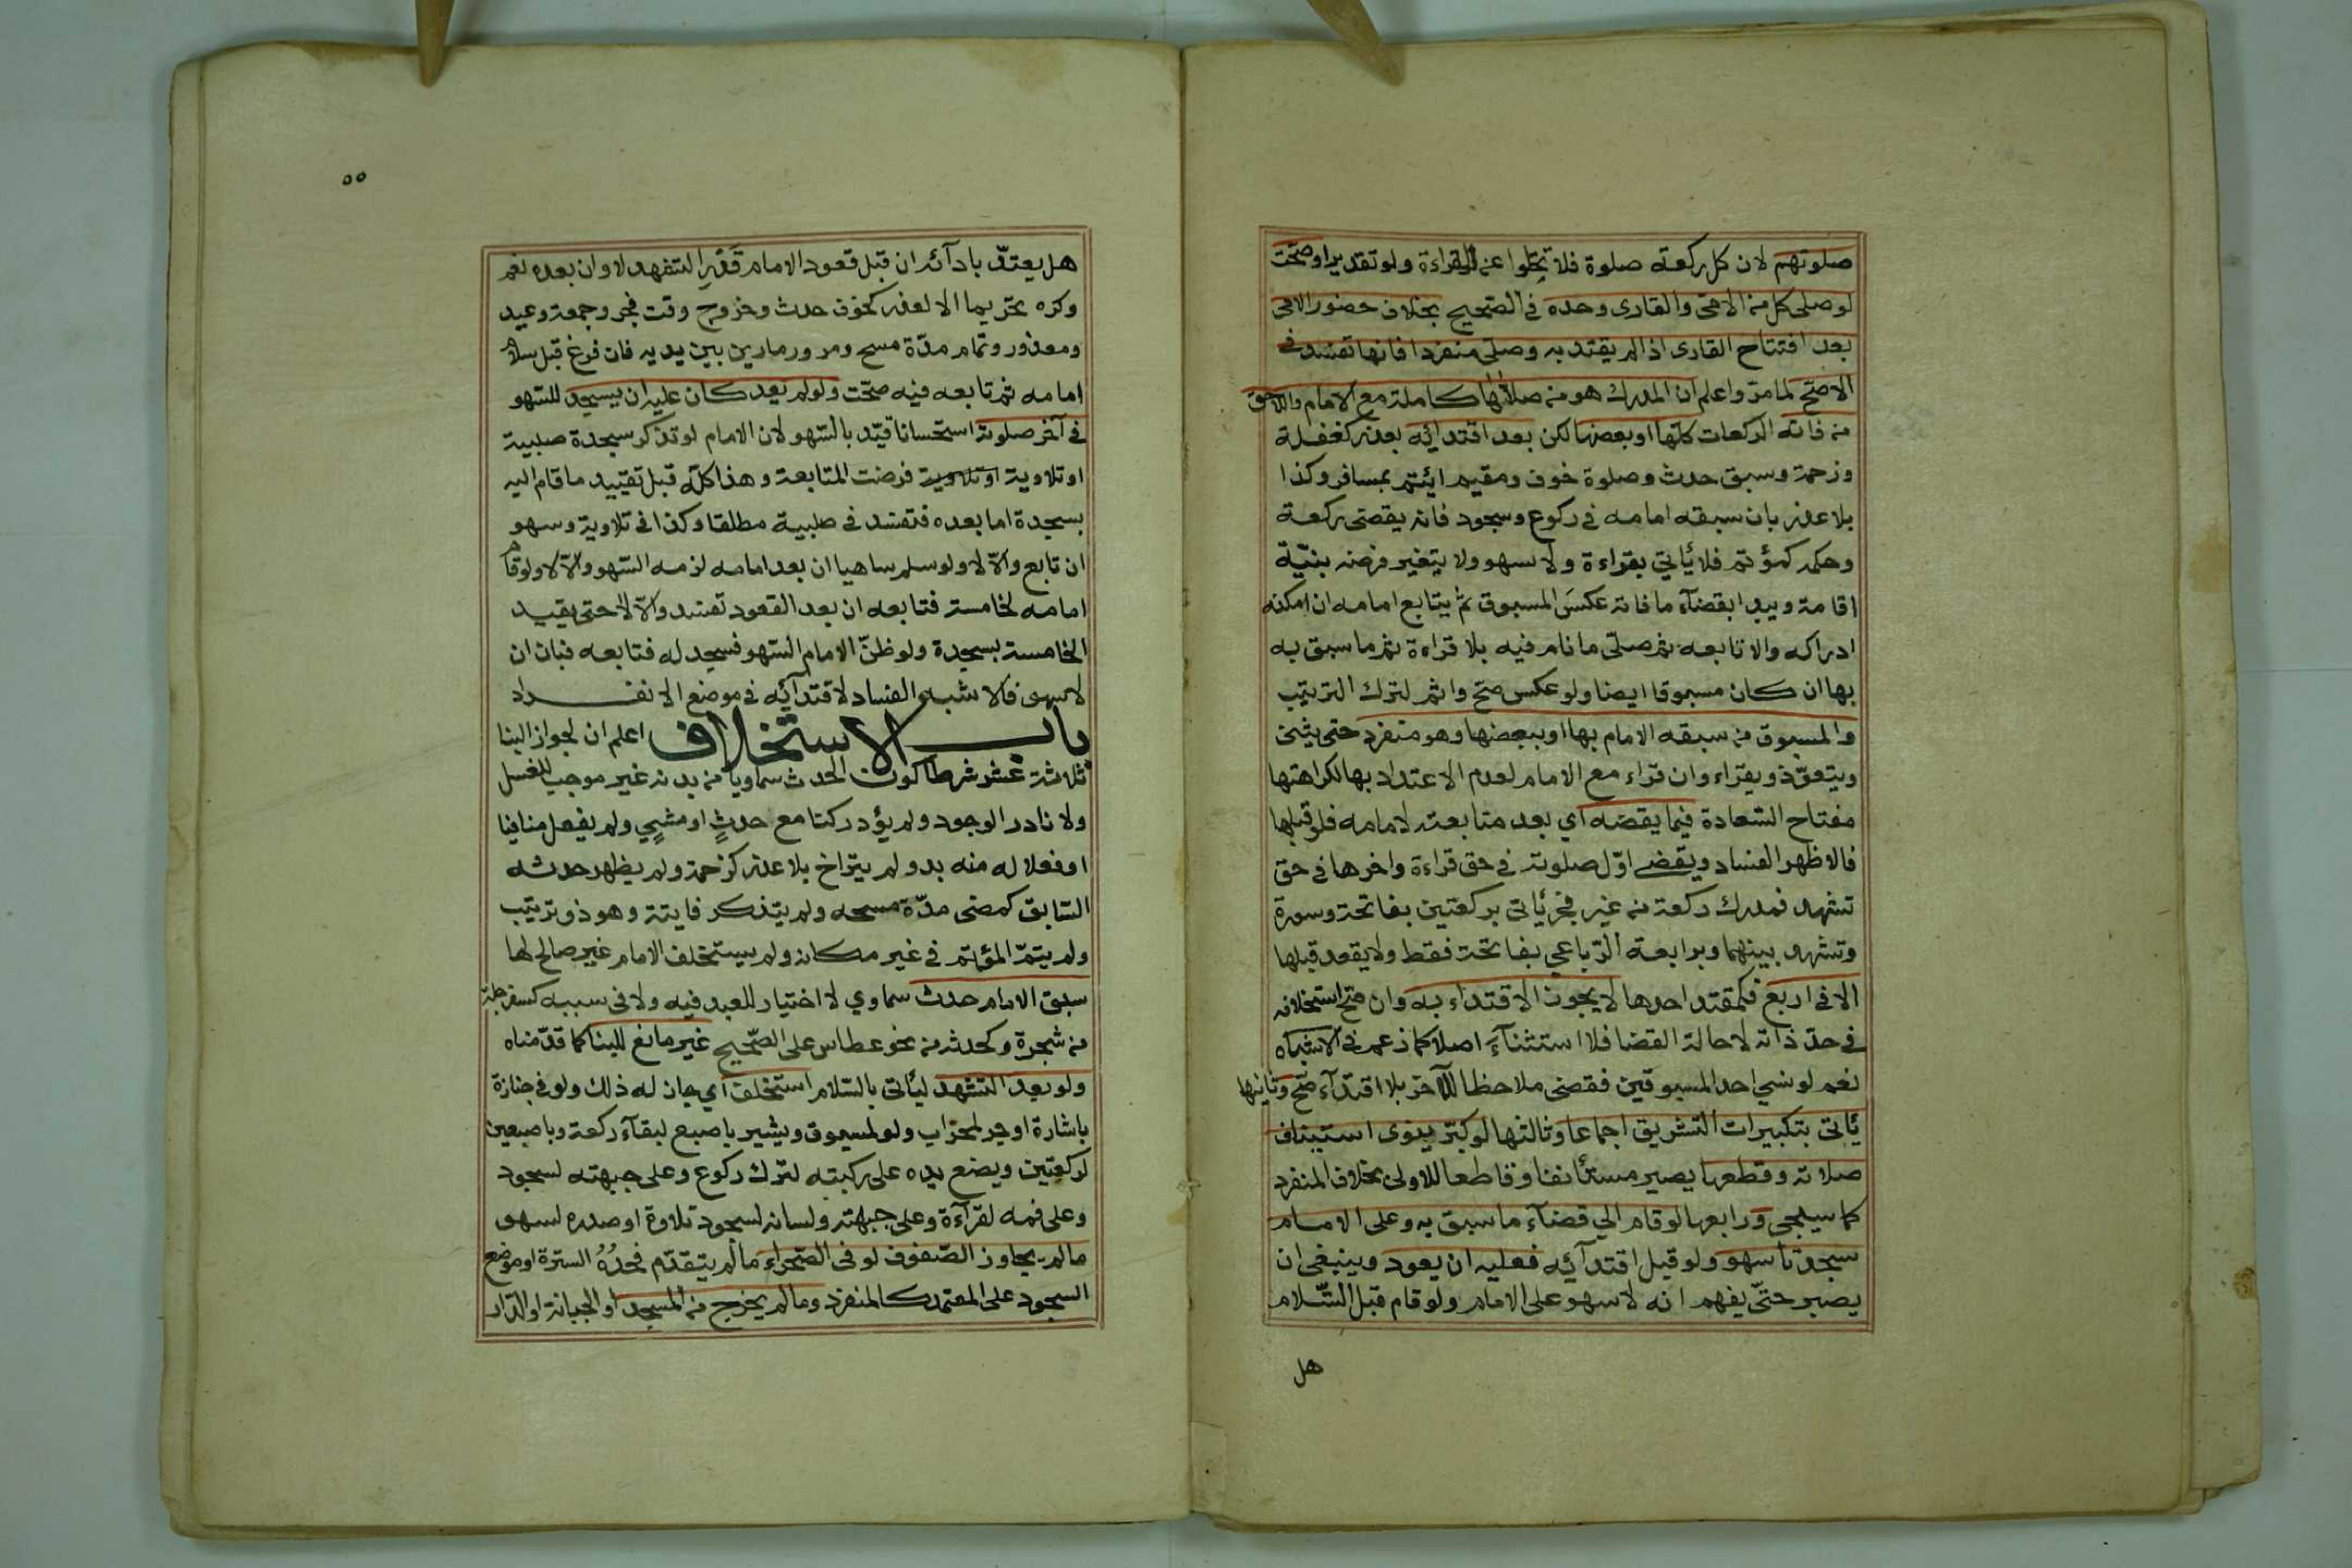 صلوتهم لان كل ركعة صلوة فلا تخلوا عن القراءة ولو تقديرا وصحت
لو صلى كل من الامى والقارى وحده فى الصحيح بخلاف حضور الامى
بعد افتتاح القارى اذا لم يقتد به وصلى منفردا فانها تفسد فى
الاصح لما مر واعلم ان المدرك هو من صلاها كاملة مع الامام واللاحق
من فاته الركعات كلها او بعضها لكن بعد اقتدائه بعذر كغفلة
وزحمة وسبق حدث وصلوة خوف ومقيم ائتم بمسافر وكذا
بلا عذر بان سبقه امامه فى ركوع وسجود فانه يقضى ركعة
وحكمه كمؤتم فلا يأتي بقراءة ولا سهو ولا يتغير فرضه بنيّة
اقامة ويبدا بقضآء ما فاته عكسَ المسبوق ثم يتابع امامه ان امكنه
ادراكه والا تابعه ثم صلّى ما نام فيه بلا قراءة ثم ما سبق به
بها ان كان مسبوقا ايضا ولو عكس صح واثم لترك الترتيب
والمسبوق من سبقه الامام بها او ببعضها وهو منفرد حتى يثنى
ويتعوّذ ويقراء وان قراء مع الامام لعدم الاعتداد بها لكراهتها
مفتاح السّعادة فيما يقضيه اي بعد متابعته لامامه فلو قبلها
فالاظهر الفساد ويقضي اوّل صلوته فى حق قراءة واخرها فى حق
تشهد فمدرك ركعة من غير فجر يأتى بركعتين بفاتحة وسورة
وتشهد بينهما وبرابعة الرّباعي بفاتحة فقط ولا يقعد قبلها
الا فى اربع فكمقتد احدها لا يجوز الاقتداء به وان صح استخلافه
فى حدّ ذاته لا حالة القضا فلا استثنآء اصلا كما زعم فى الاشباه
نعم لو نسي احد المسبوقين فقضى ملاحظا للآخر بلا اقتدآء صح وثانيها
يأتى بتكبيرات التشريق اجماعا وثالثها لو كبّر ينوى استيناف
صلاته وقطعها يصير مستأنفا وقاطعا للاولى بخلاف المنفرد
كما سيلجى ورابعها لو قام الي قضآء ما سبق به وعلى الامام
سجدتا سهو ولو قبل اقتدآئه فعليه ان يعود وينبغى ان
يصبر حتّى يفهم انه لا سهو على الامام ولو قام قبل السّلام
هل
٥٥
هل يعتدّ بادآئه ان قبل قعود الامام قَدْرَ التشهد لا وان بعده نعم
وكره تحريما الا لعذر كخوف حدث وخروج وقت فجر وجمعة وعيد
ومعذور وتمام مدّة مسح ومرور مارين بين يديه فان فرغ قبل سلام
امامه ثم تابعه فيه صحّت ولو لم يعد كان عليه ان يسجد للسّهو
فى آخر صلوته استحسانا قيّد بالسّهو لان الامام لو تذكر سجدة صلبية
او تلاوية او تلاوية فرضت المتابعة وهذا كلّه قبل تقييد ما قام اليه
بسجدة اما بعده فتفسد فى صلبية مطلقا وكذا فى تلاوية وسهو
ان تابع والّا لا ولو سلم ساهيا ان بعد امامه لزمه السّهو والّا لا ولو قام
امامه لخامسة فتابعه ان بعد القعود تفسد والّا لا حتى يقيد
الخامسة بسجدة ولو ظنّ الامام السّهو فسجد له فتابعه فبان ان
لا سهو فالاشبه الفساد لاقتدآئه فى موضع الانفراد
باب الاستخلاف اعلم ان لجواز البنا
ثلاثة عشر شرطا كون الحدث سماويا من بدنه غير موجب للغسل
ولا نادر الوجود ولم يؤد ركنا مع حدثٍ او مشيٍ ولم يفعل منافيا
او فعلا له منه بد ولم يتراخ بلا عذر كزحمة ولم يظهر حدثه
السّابق كمضى مدّة مسحه ولم يتذكر فايتة وهو ذو ترتيب
ولم يتمّ المؤتم فى غير مكانه ولم يستخلف الامام غير صالح لها
سبق الامام حدث سماوي لا اختيار للعبد فيه ولا فى سببه كسفرجلة
من شجرة وكحدثه من نحو عطاس على الصّحيح غير مانع للبنا كما قدّمناه
ولو بعد التشهد ليأتى بالسّلام استخلف اي جاز له ذلك ولو فى جنازة
باشارة او جر لمحراب ولو لمسبوق ويشير باصبع لبقآء ركعة وباصبعين
لركعتين ويضع يده على ركبته لترك ركوع وعلى جبهته لسجود
وعلى فمه لقرآءة وعلى جبهته ولسانه لسجود تلاوة او صدره لسهو
ما لم يجاوز الصّفوف لو فى الصّحراء ما لم يتقدّم فحدُهُ السترة او موضع
السجود على المعتمد كالمنفرد وما لم يخرج من المسجد او الجبانة او الدّار